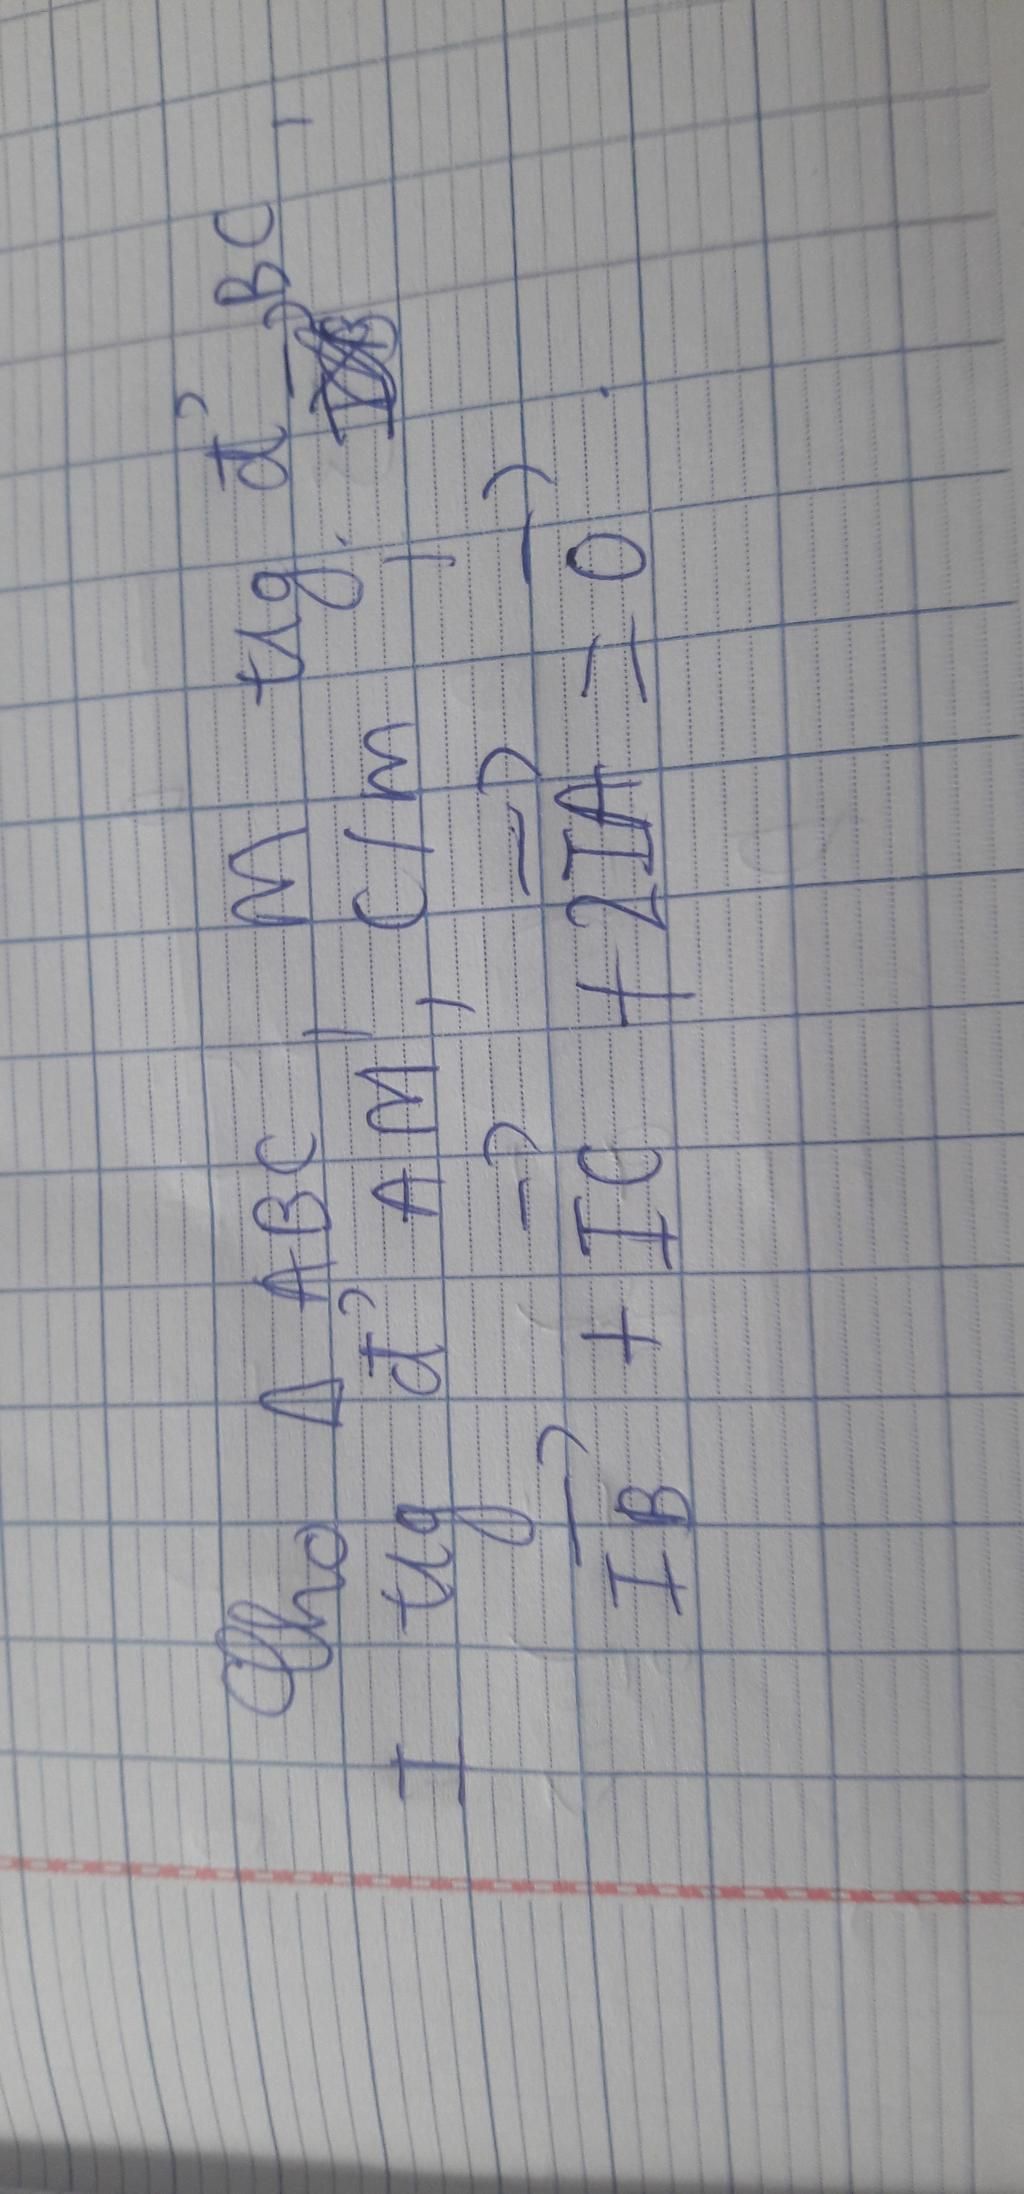 Cho Δ ABC, M tg đ² BC,
I tg đ² AM, C/m,
IB + IC + 2IA = 0.